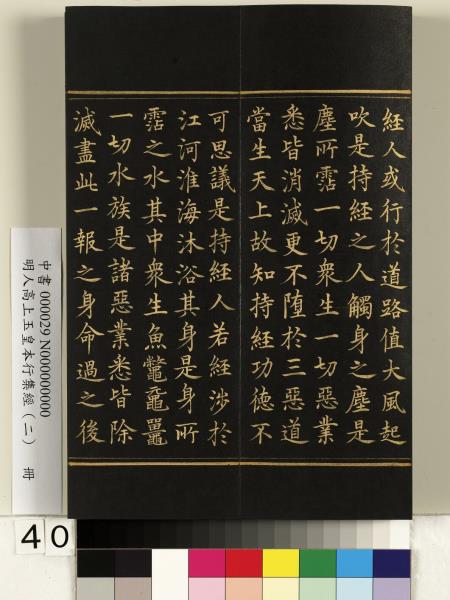 經人或行於道路值大風起
吹是持經之人觸身之塵是
塵所霑一切衆生一切惡業
悉皆消滅更不堕於三惡道
當生天上故知持經功德不
可思議是持經人若經涉於
江河淮海沐浴其身是身所
霑之水其中衆生魚鼈黿鼉
一切水族是諸惡業悉皆除
滅盡此一報之身命過之後
中書 000029 N000000000
明人高上玉皇本行集經(二) 冊
40